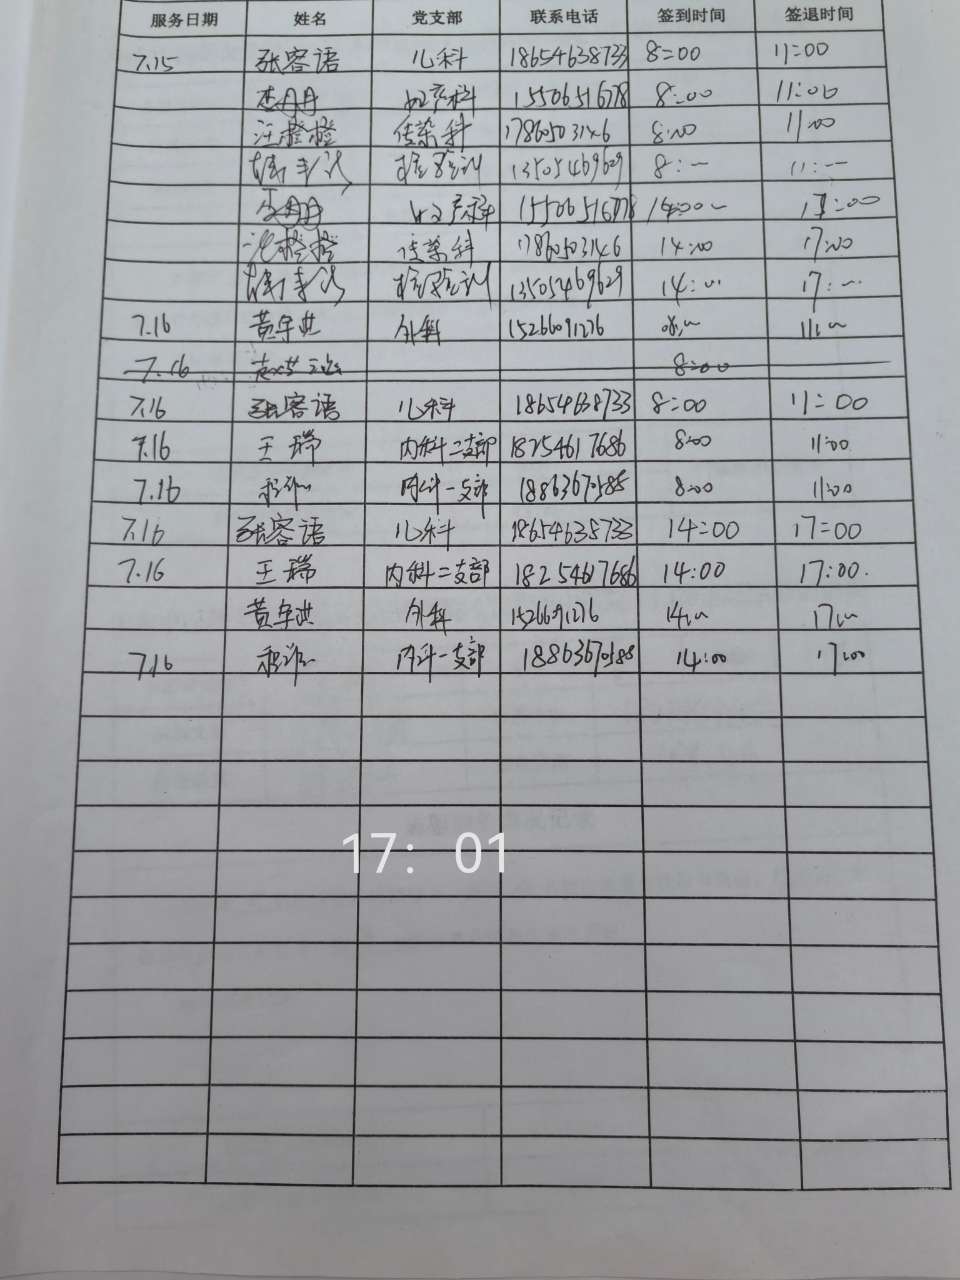 服务日期 姓名 党支部 联系电话 签到时间 签退时间
7.15 张容语 儿科 18654638733 8:00 11:00
李丹丹 妇产科 15506516778 8:00 11:00
汪橙橙 传染科 17860503146 8:00 11:00
13505469629 8:— 11:—
李丹丹 妇产科 15506516778 14:00 17:00
汪橙橙 传染科 17860503146 14:00 17:00
13505469629 14:00 17:—
7.16 黄宇洪 外科 15266091276 08:— 11:—
7.16 8:00
7.16 张容语 儿科 18654638733 8:00 11:00
7.16 王瑞 内科二支部 18254617686 8:00 11:00
7.16 内科一支部 18863670588 8:00 11:00
7.16 张容语 儿科 18654638733 14:00 17:00
7.16 王瑞 内科二支部 18254617686 14:00 17:00.
黄宇洪 外科 15266091276 14:— 17:—
7.16 内科一支部 18863670588 14:00 17:00
17: 01